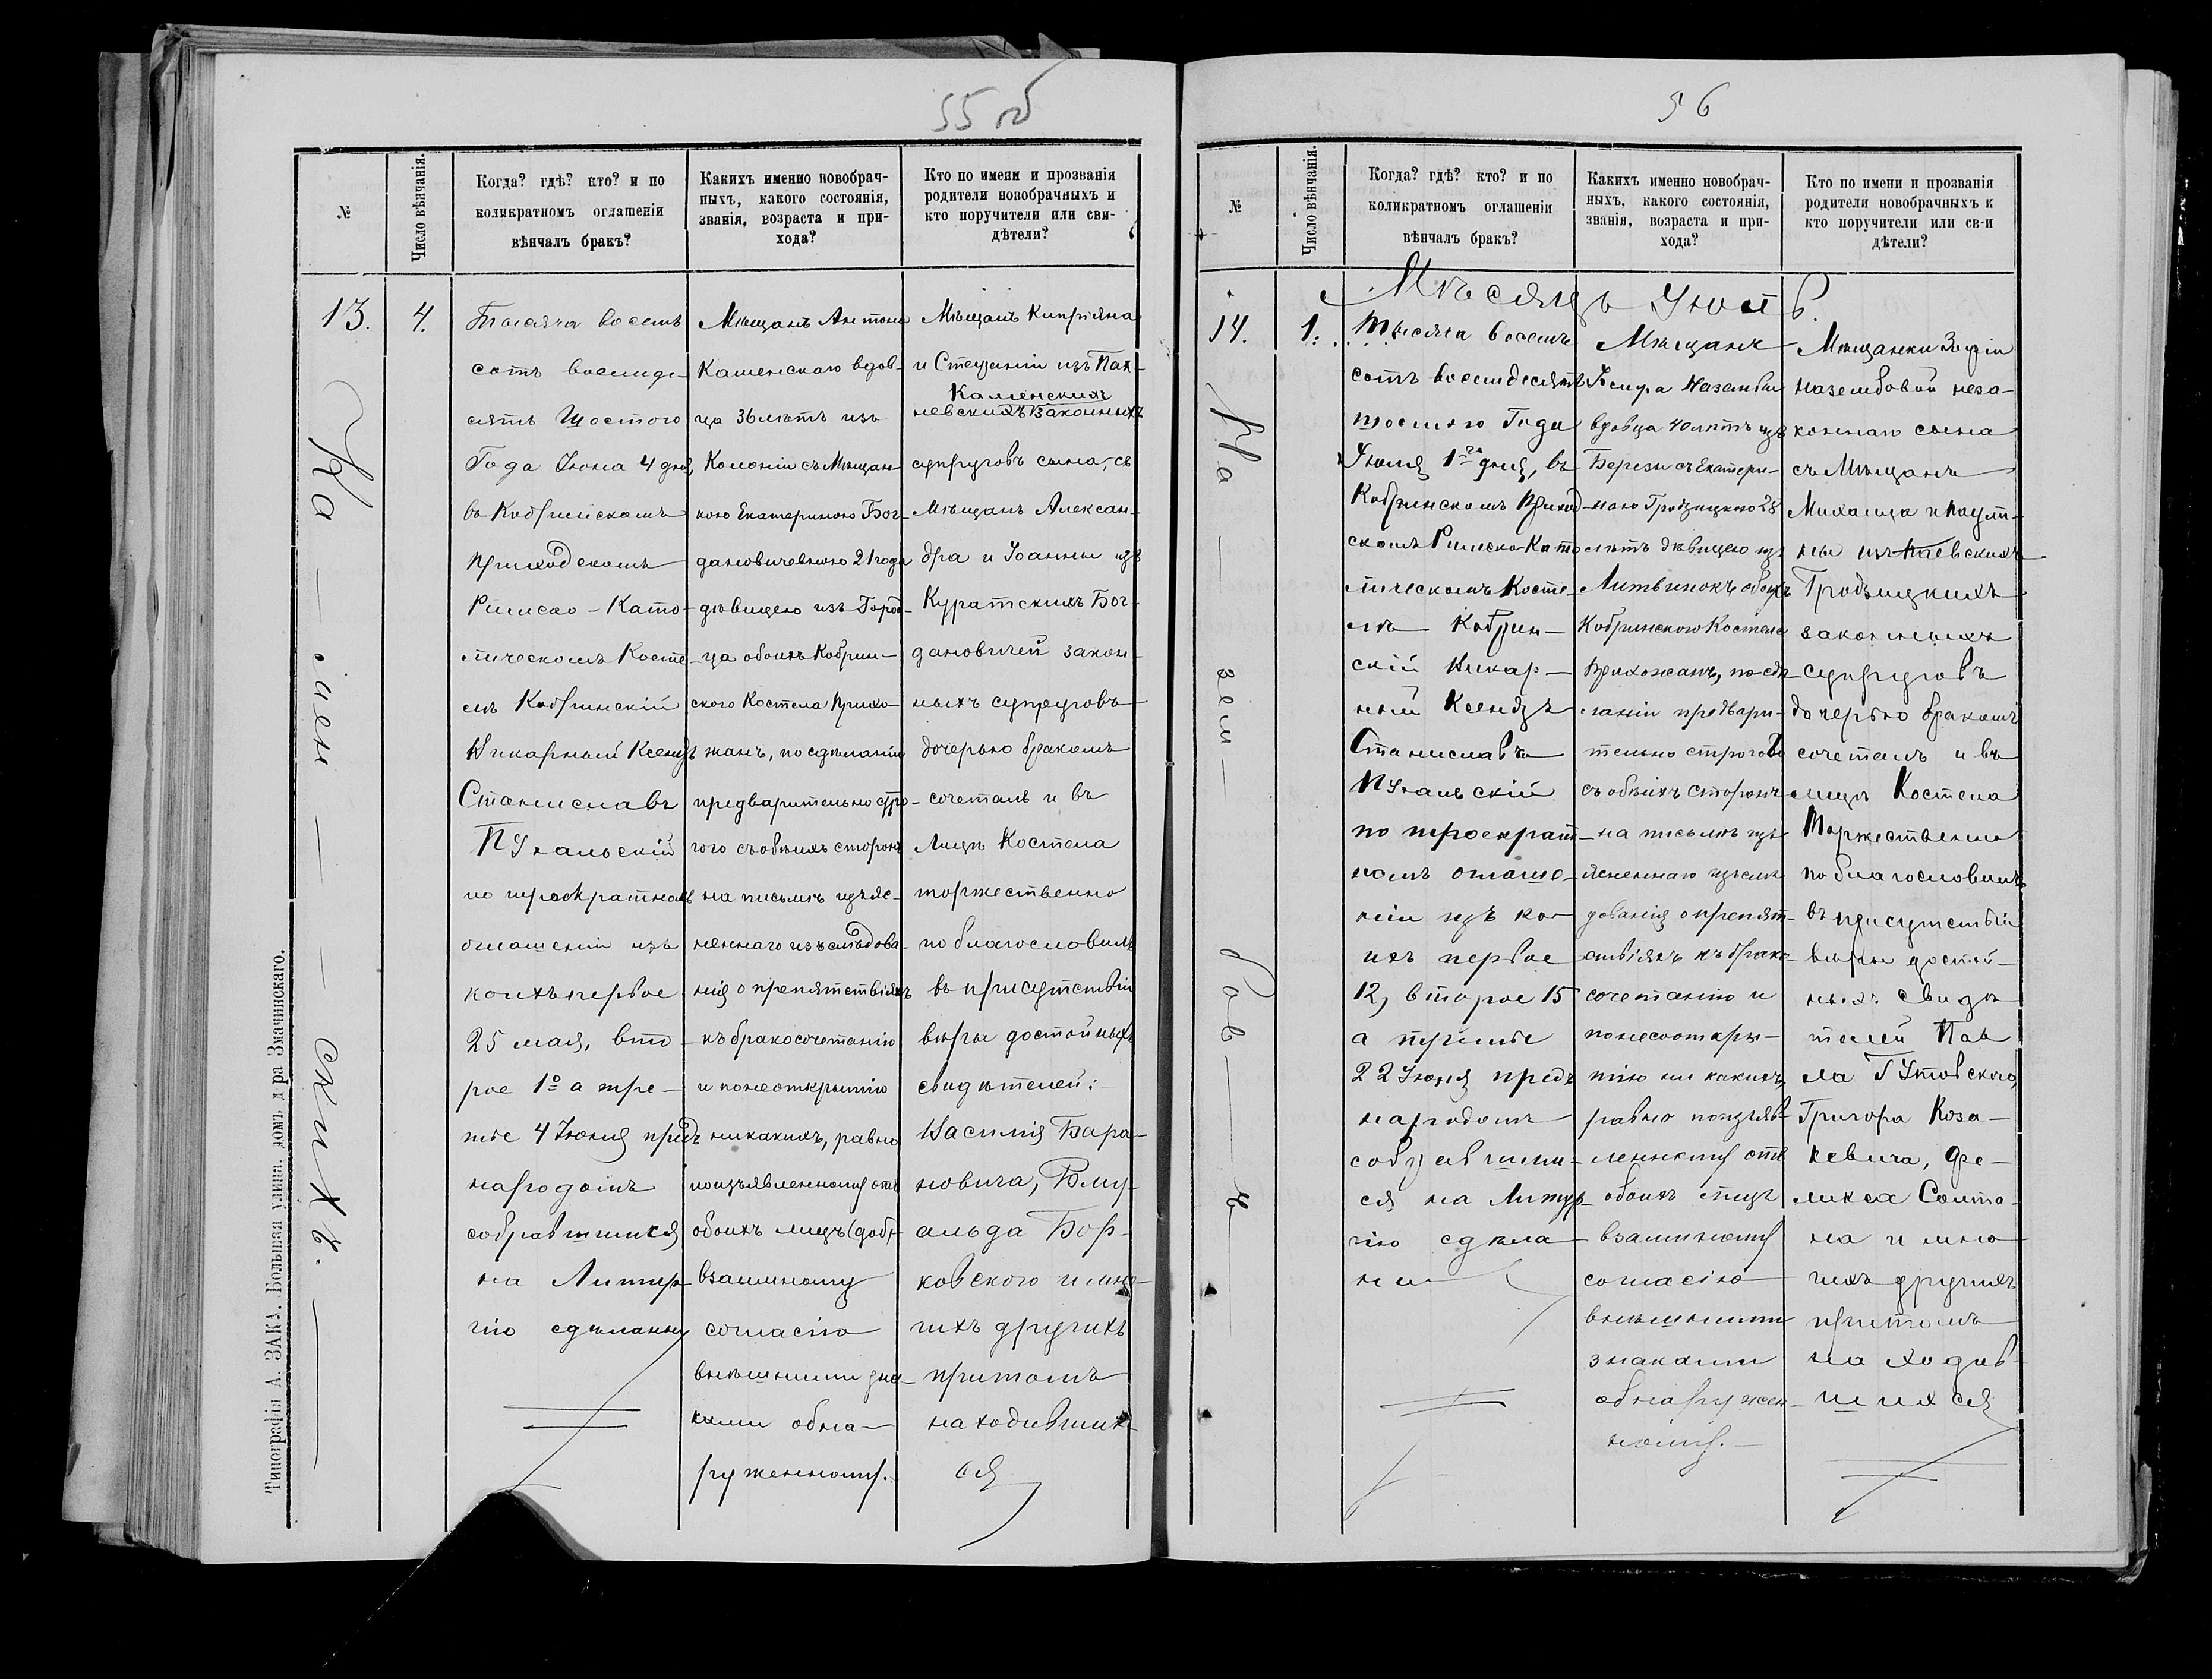 55 об
№
Число вѣнчанія.
Когда? гдѣ? кто? и по
коликратномъ оглашеніи
вѣнчалъ бракъ?
Какихъ именно новобрач-
ныхъ, какого состоянія,
званія, возраста и при-
хода?
Кто по имени и прозванія
родители новобрачныхъ и
кто поручители или сви-
дѣтели?
13.
Ка — мен — скихъ.
4.
Тысяча восемъ
сотъ восемде-
сятъ Шостого
Года Іюня 4 дня,
въ Кобринскомъ
Приходскомъ
Римско-Като-
лическомъ Косте-
лѣ Кобринскій
Викарный Ксендзъ
Станиславъ
ПУкальскій
по троекратномъ
оглашеніи изъ
коихъ первое
25 мая, вто-
рое 1º а тре-
тье 4 Іюня предъ
народомъ
собравшимся
на Литур-
гію сдѣланны
Мѣщанъ Антона
Каменскаго вдов-
ца 36 лѣтъ изъ
Колоніи съ Мѣщан-
кою Екатериною Бог-
дановичевною 21 года
дѣвицею изъ Город-
ца обоихъ Кобрин-
ского Костела Прихо-
жанъ, по сдѣланіи
предварительно стро-
гого съ обѣихъ сторонъ
на письмѣ изъяс-
неннаго изслѣдова-
нія о препятствіяхъ
къ бракосочетанію
и понеоткрытію
никакихъ, равно
поизъявленному отъ
обоихъ лицъ
взаимному
согласію
внѣшними зна-
ками обна-
руженному.
Мѣщанъ Кипріяна
и Стефаніи изъ
Каменскихъ
законныхъ
супруговъ сына, съ
Мѣщанъ Алексан-
дра и Іоанны изъ
Куратскихъ Бог-
дановичей закон-
ныхъ супруговъ
дочерью бракомъ
сочеталъ и въ
Лицѣ Костела
торжественно
поблагословилъ
въ присутствіи
вѣры достойныхъ
свидѣтелей:
Василія Бара-
новича, Ромү-
альда Бор-
ковского и мно-
гихъ другихъ
притомъ
находивших-
ся
Типографія А. ЗАКА. Большая улица, домъ д-ра Змачинскаго.
56
№
Число вѣнчанія.
Когда? гдѣ? кто? и по
коликратномъ оглашеніи
вѣнчалъ бракъ?
Какихъ именно новобрач-
ныхъ, какого состоянія,
званія, возраста и при-
хода?
Кто по имени и прозванія
родители новобрачныхъ и
кто поручители или св-и
дѣтели?
Мѣсяцъ Іюль.
14.
На — зем — бов — ъ
1.
Тысяча восемъ
сотъ восемдесятъ
шостого Года
Іюля 1го дня, въ
Кобринскомъ Приход-
скомъ Римско-Като-
лическомъ Косте-
лѣ Кобрин-
скій Викар-
ный Ксендзъ
Станиславъ
ПУкальскій
по троекрат-
номъ оглаше-
ніи изъ ко-
ихъ первое
12, второе 15
а третье
22 Іюня предъ
народомъ
собравшим-
ся на Литур-
гію сдѣла-
ны
Мѣщанъ
Іосифа Наземба
вдовца 40 лѣтъ изъ
Березы съ Екатери-
ною Гродзицкою 28
лѣтъ дѣвицею изъ
Литвинокъ обоихъ
Кобринского Костела
Прихожанъ, по сдѣ-
ланіи предвари-
тельно строгого
съ обѣихъ сторонъ
на письмѣ изъ-
ясненнаго изслѣ-
дованія о препят-
ствіяхъ къ брако-
сочетанію и
понеоткры-
тію ни какихъ,
равно поизъяв-
ленному отъ
обоихъ лицъ
взаимному
согласію
внѣшними
знаками
обнаружен-
ному.
Мѣщанки Зофіи
Назембовой неза-
коннаго сына
съ Мѣщанъ
Михаила и Паули-
ны изъ
Гродзицкихъ
законныхъ
супруговъ
дочерью бракомъ
сочеталъ и въ
лицѣ Костела
Торжественно
поблагословилъ
въ присутствіи
вѣры достой-
ныхъ свидѣ-
телей Пав-
ла ГУтовского,
Григора Коза-
кевича, Фе-
ликса Солта-
на и мно-
гихъ другихъ
притомъ
находив-
шихся